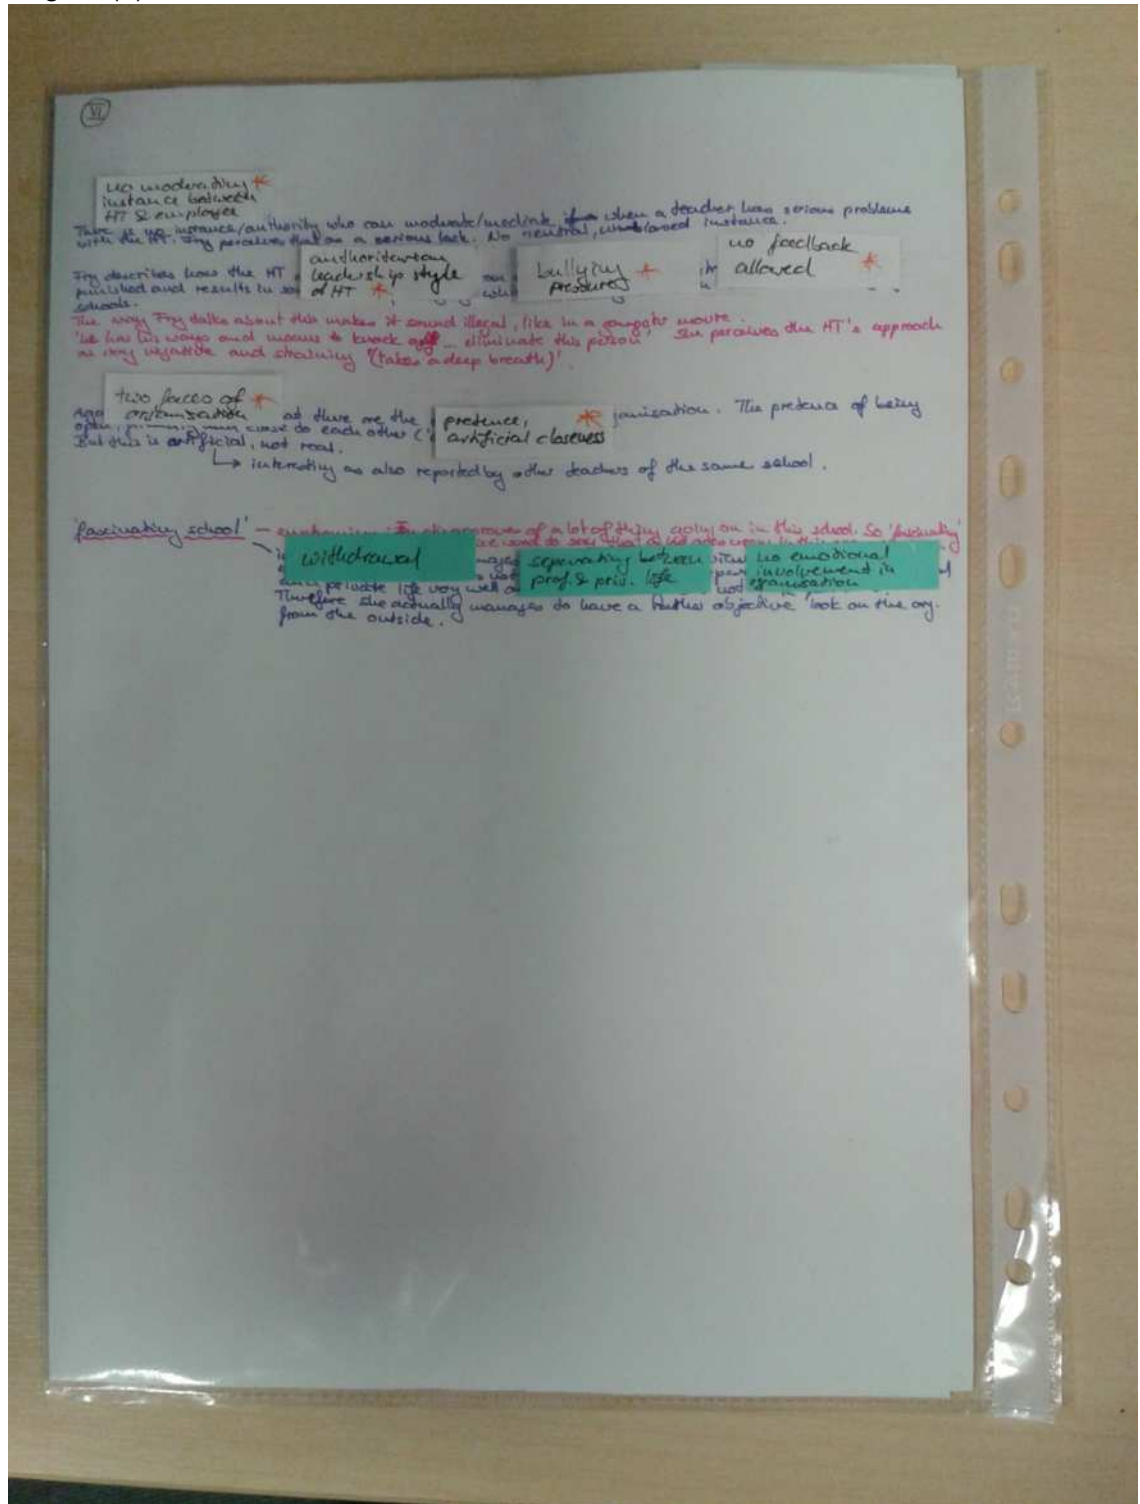 VI
no moderating *
instance between
HT & employee
There is no instance/authority who can moderate/mediate when a teacher has serious problems
with the HT. Fry perceives that as a serious lack. No neutral, unbiased instance.
authoritarian
leadership style
of HT *
bullying *
pressure
no feedback
allowed *
Fry describes how the HT
punished and results in
schools.
The way Fry talks about this makes it sound illegal, like in a gangster movie.
'he has his ways and means to knack off ... eliminate this person' She perceives the HT's approach
as very negative and straining '(takes a deep breath)'.
two faces of *
organisation
pretence, *
artificial closeness
as there are the janisation. The pretence of being
open, close to each other
But this is artificial, not real.
↳ interesting as also reported by other teachers of the same school.
'fascinating school' – euphemism: disapproves of a lot of things going on in this school. So 'fascinating'
withdrawal
separating between
prof. & priv. life
no emotional
involvement in
organisation
and private life very well
Therefore she actually manages to have a further objective 'look on the org.
from the outside.